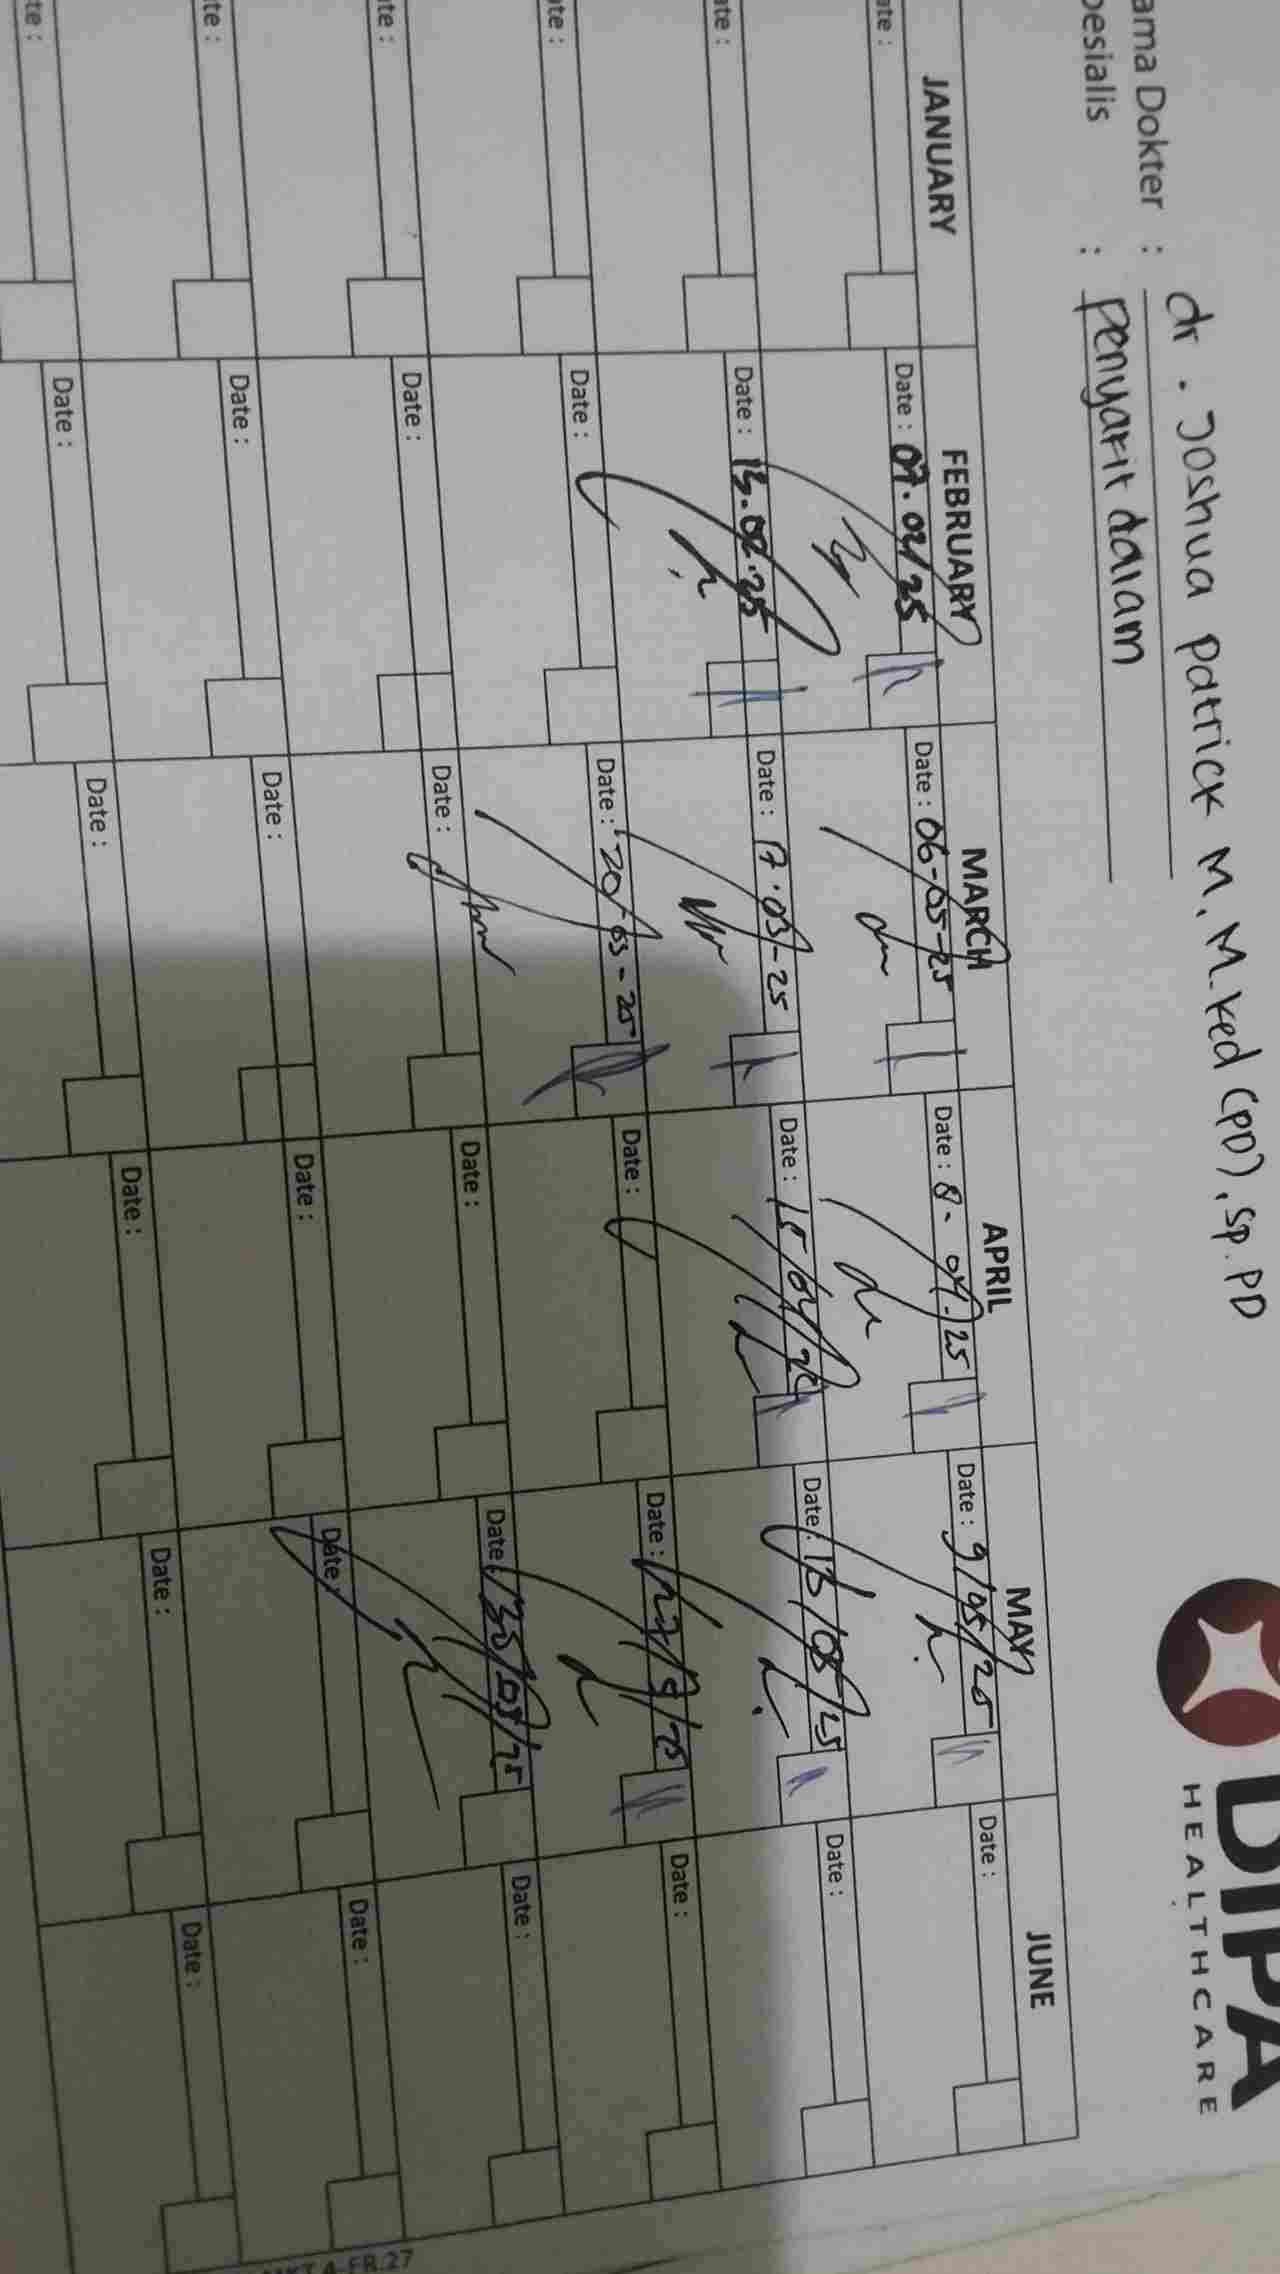 DIPA
HEALTHCARE
ama Dokter : dr. Joshua Patrick M, M.Ked (PD), Sp.PD
pesialis : Penyakit dalam
JANUARY FEBRUARY MARCH APRIL MAY JUNE
ate : Date : 07.02/25 Date : 06-05-25 Date : 8-04-25 Date : 9/05/25 Date :
ate : Date : 13.02.25 Date : 17.03-25 Date : 15/04/25 Date : 13/05/25 Date :
ate : Date : Date : 20-03-25 Date : Date : Date :
ate : Date : Date : Date : Date Date :
ate : Date : Date : Date : Date Date :
te : Date : Date : Date : Date : Date :
FR.27